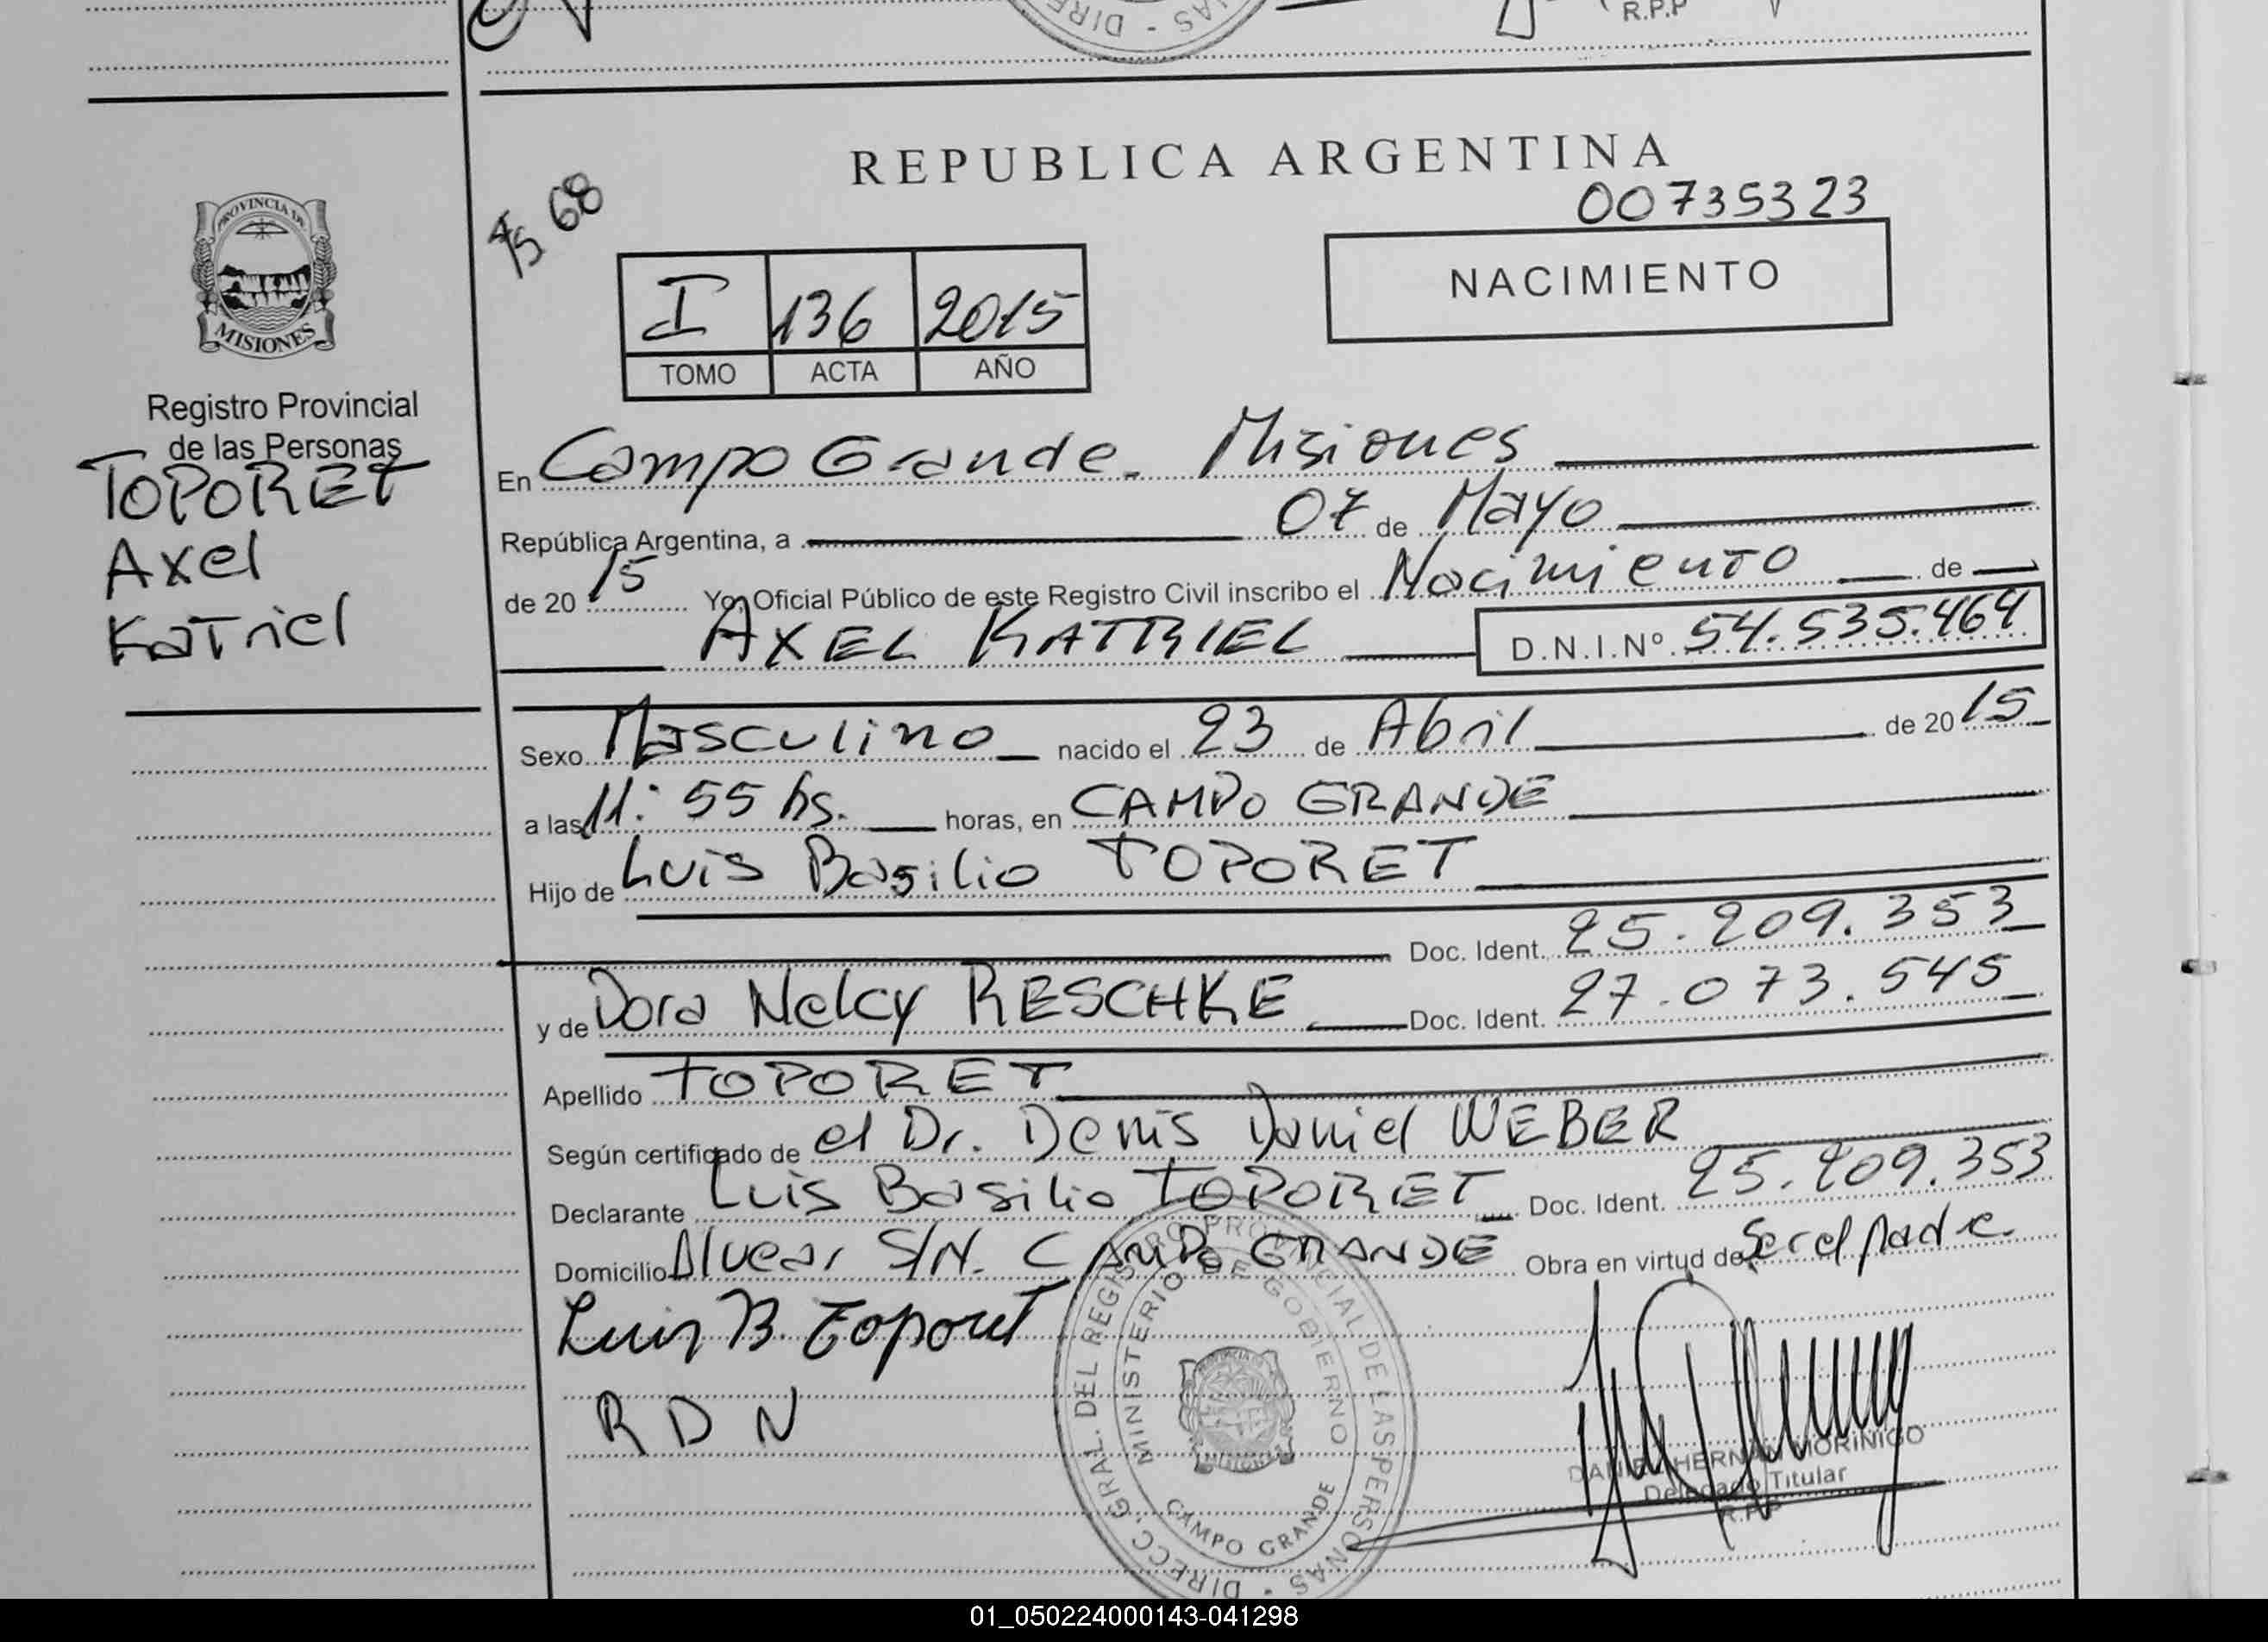 R.P.P
DIRE - NAS
REPUBLICA ARGENTINA
00735323
Fs 68
NACIMIENTO
I 136 2015
TOMO ACTA AÑO
PROVINCIA DE
MISIONES
Registro Provincial
de las Personas
TOPORET
Axel
Katriel
En Campo Grande. Misiones
República Argentina, a 07 de Mayo
de 20 15 Yo, Oficial Público de este Registro Civil inscribo el Nacimiento de
AXEL KATRIEL D.N.I.Nº 54.535.464
Sexo Masculino nacido el 23 de Abril de 20 15
a las 11:55 hs. horas, en CAMPO GRANDE
Hijo de Luis Basilio TOPORET
Doc. Ident. 25.209.353
y de Dora Nelcy RESCHKE Doc. Ident. 27.073.545
Apellido TOPORET
Según certificado de el Dr. Denis Daniel WEBER
Declarante Luis Basilio TOPORET Doc. Ident. 25.209.353
Domicilio Alvear S/N. CAMPO GRANDE Obra en virtud de Ser el padre
Luis B. Toporet
R D N
DIRECC. GRAL. DEL REGISTRO PROVINCIAL DE LAS PERSONAS
MINISTERIO DE GOBIERNO
MISIONES
CAMPO GRANDE
DANIEL HERNAN MORINIGO
Delegado Titular
R.P.P
01_050224000143-041298